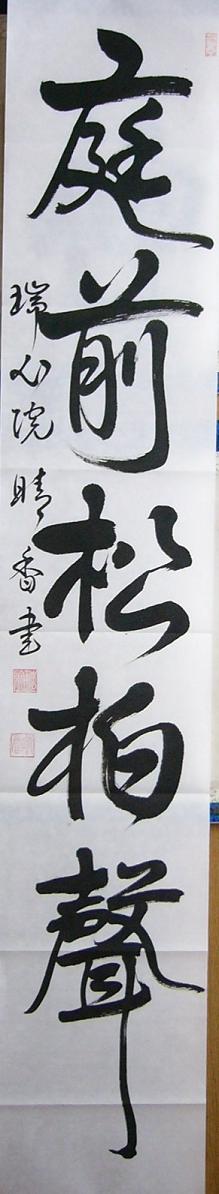 庭前松柏聲
瑞心院 晴香書